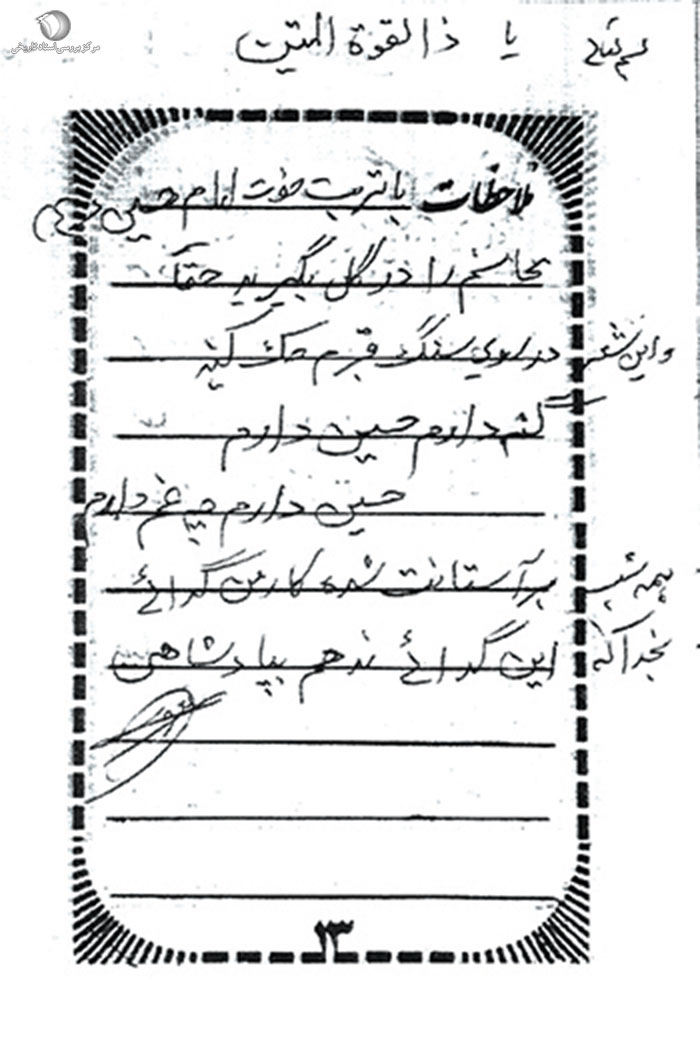 مرکز بررسی اسناد تاریخی
یا ذا القوة المتین
ملاحظات با تربت امام حسین
را در گل بگیرید حتماً
و این شعر در روی سنگ قبرم حک کنید
دارم حسین دارم
حسین دارم چه غم دارم
همه شب بر آستانت شده کار من گدائی
بخدا که این گدائی ندهم بپادشاهی
۱۳